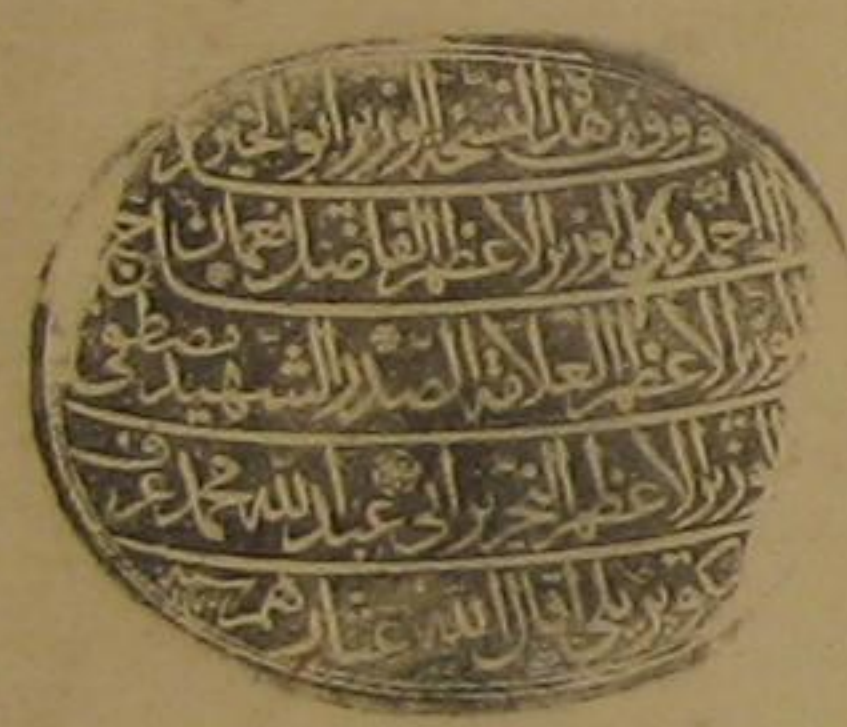 ووقف هذا النسخة الوزير ابو الخير
الحاج احمد بن الوزير الاعظم الفاضل نعمان
الوزير الاعظم العلامة الصدر الشهيد مصطفى
الوزير الاعظم النحرير ابي عبد الله محمد عرف
بكوپريلي اقال الله عثارهم